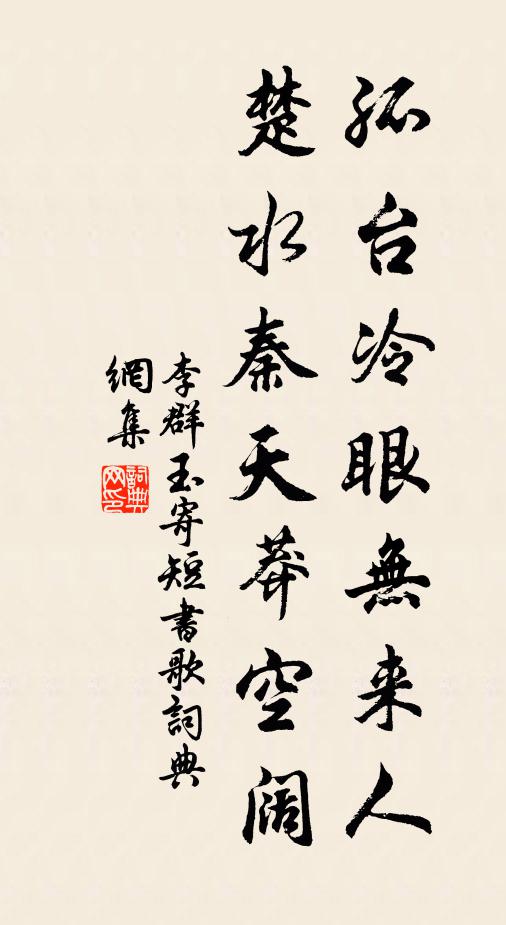 孤台冷眼無来人
楚水秦天莽空阔
李群玉寄短書歌詞典
網集
詞典
网印